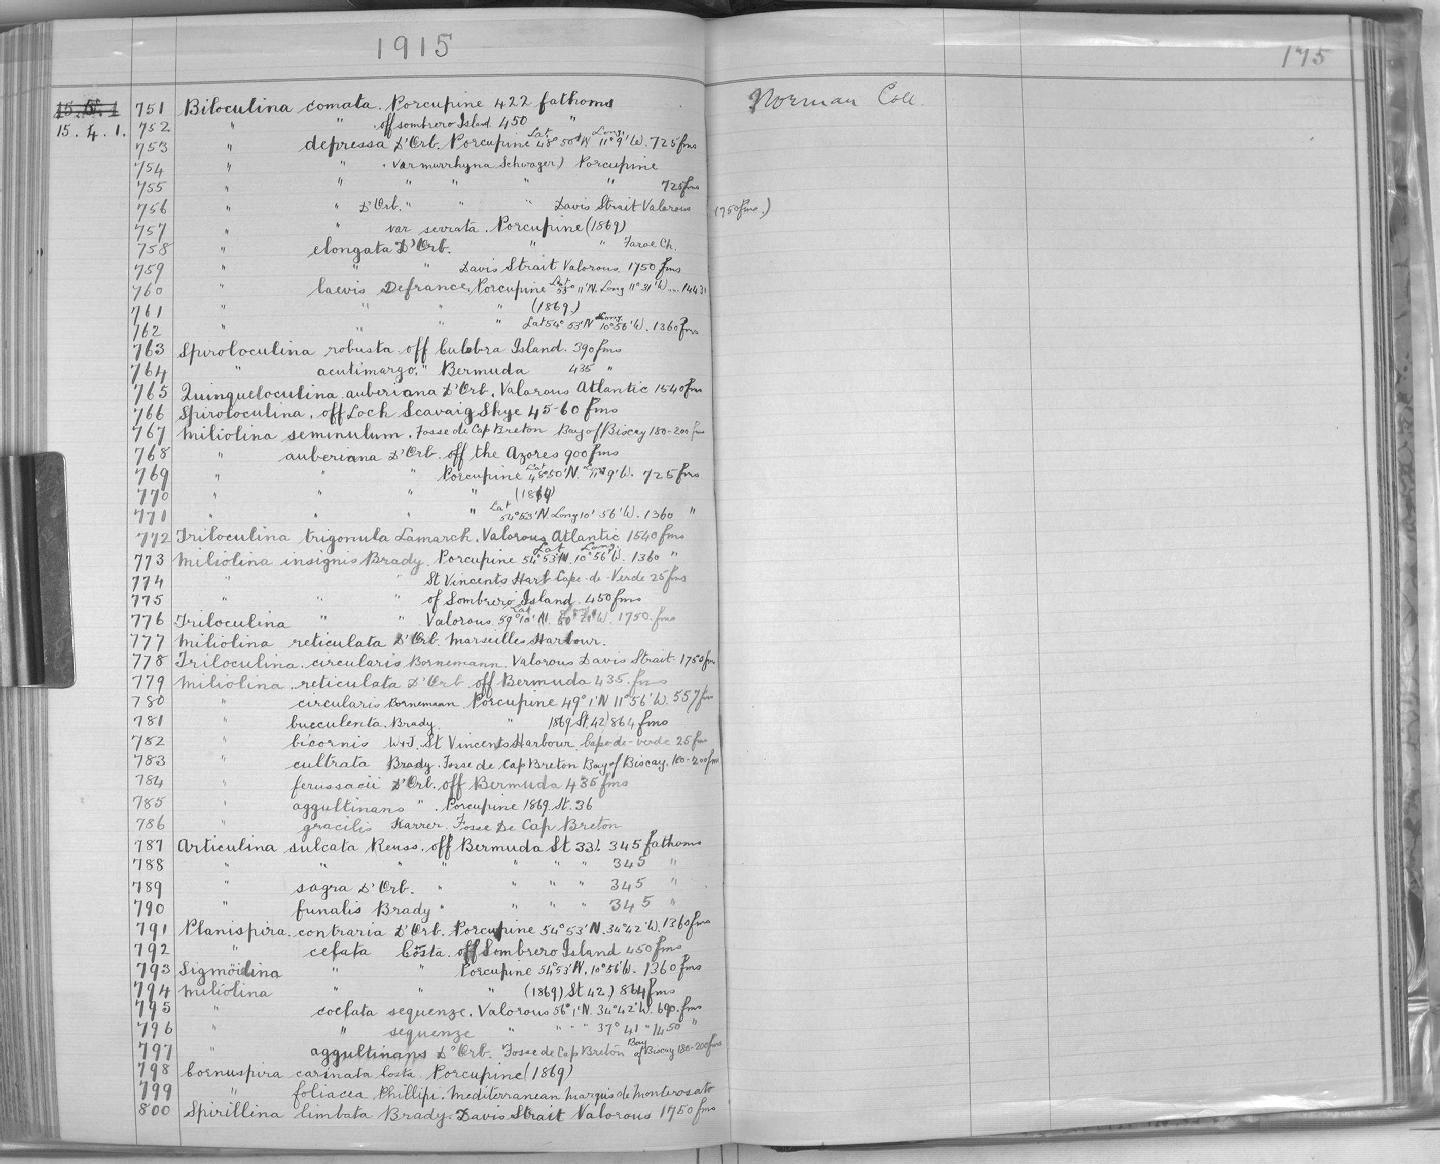 1915
175
15. 4. 1. 751 Biloculina comata. Porcupine 422 fathoms Norman Coll.
752 " " off sombrero Island 450 "
753 " depressa D'Orb. Porcupine Lat 48° 50' N Long. 11° 9' W. 725 fms
754 " " . var murrhyna Schwager) Porcupine
755 " " " " " " 725 fms
756 " " D'Orb. " " " Davis Strait Valorous (1750 fms.)
757 " " var serrata. Porcupine (1869)
758 " elongata D'Orb. " " Faroe Ch.
759 " " " Davis Strait Valorous 1750 fms
760 " laevis Defrance, Porcupine Lat 55° 11' N. Long 11° 31' W. ... 1443
761 " " " " (1869)
762 " " " Lat 54° 53' N Long 10° 56' W. 1360 fms
763 Spiroloculina robusta off Culebra Island. 390 fms
764 " acutimargo, " Bermuda 435 "
765 Quinqueloculina auberiana D'Orb. Valorous Atlantic 1540 fms
766 Spiroloculina. off Loch Scavaig Skye 45-60 fms
767 Miliolina seminulum. Fosse de Cap Breton Bay of Biscay 180-200 fms
768 " auberiana D'Orb. off the Azores 900 fms
769 " " " Porcupine Lat 48° 50' N. 11° 9' W. 725 fms
770 " " " " (1869)
771 " " " " Lat 54° 53' N. Long 10° 56' W. 1360 "
772 Triloculina trigonula Lamarck. Valorous Atlantic 1540 fms
773 Miliolina insignis Brady. Porcupine Lat 54° 53' N. Long. 10° 56' W. 1360 "
774 " " St Vincents Harb Cape-de-Verde 25 fms
775 " " " of Sombrero Island. 450 fms
776 Triloculina " " Valorous. Lat 59° 10' N. 50° W. 1750. fms
777 Miliolina reticulata D'Orb. Marseilles Harbour.
778 Triloculina. circularis Bornemann. Valorous Davis Strait. 1750 fms
779 Miliolina. reticulata D'Orb. off Bermuda 435. fms
780 " circularis Bornemann Porcupine 49° 1' N 11° 56' W. 557 fms
781 " bucculenta Brady. " 1869 St. 42) 864 fms
782 " bicornis W+J. St Vincents Harbour. Cape-de-verde 25 fms
783 " cultrata Brady. Fosse de Cap Breton Bay of Biscay. 180-200 fms
784 " ferussacii D'Orb. off Bermuda 435 fms
785 " aggultinans " . Porcupine 1869. St. 36
786 " gracilis Karrer. Fosse De Cap Breton
787 Articulina sulcata Reuss. off Bermuda St 33). 345 fathoms
788 " " " " " " " 345 "
789 " sagra D'Orb. " " " " 345 "
790 " funalis Brady " " " " 345 "
791 Planispira. contraria D'Orb. Porcupine 54° 53' N. 34° 42' W. 1360 fms
792 " celata Costa. off Sombrero Island 450 fms
793 Sigmöilina " " Porcupine 54° 53' N. 10° 56' W. 1360 fms
794 Miliolina " " " (1869) St 42.) 864 fms
795 " coelata sequenze. Valorous 56° 1' N. 34° 42' W. 690. fms
796 " " sequenze " " " " 37° 41 " 1450 "
797 " aggultinans D'Orb. Fosse de Cap Breton Bay of Biscay 180-200 fms
798 Cornuspira carinata Costa. Porcupine (1869)
799 " foliacea Phillipi. Mediterranean Marquis de Monterosato
800 Spirillina limbata Brady. Davis Strait Valorous 1750 fms